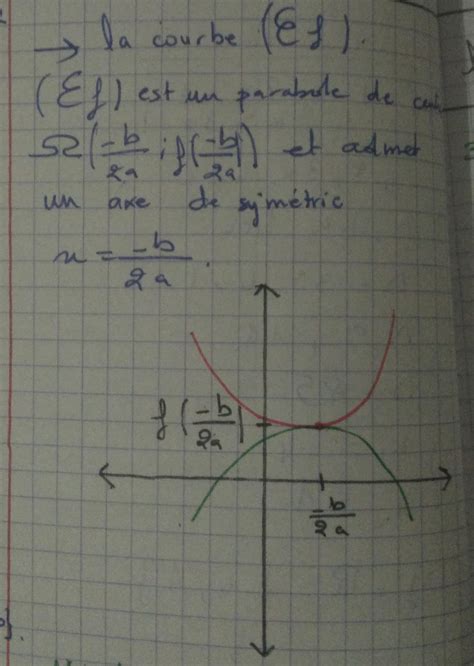 → la courbe (Ɛf).
(Ɛf) est un parabole de
Ω(-b/2a ; f(-b/2a)) et admet
un axe de symétric
x = -b/2a.
f(-b/2a)
-b/2a